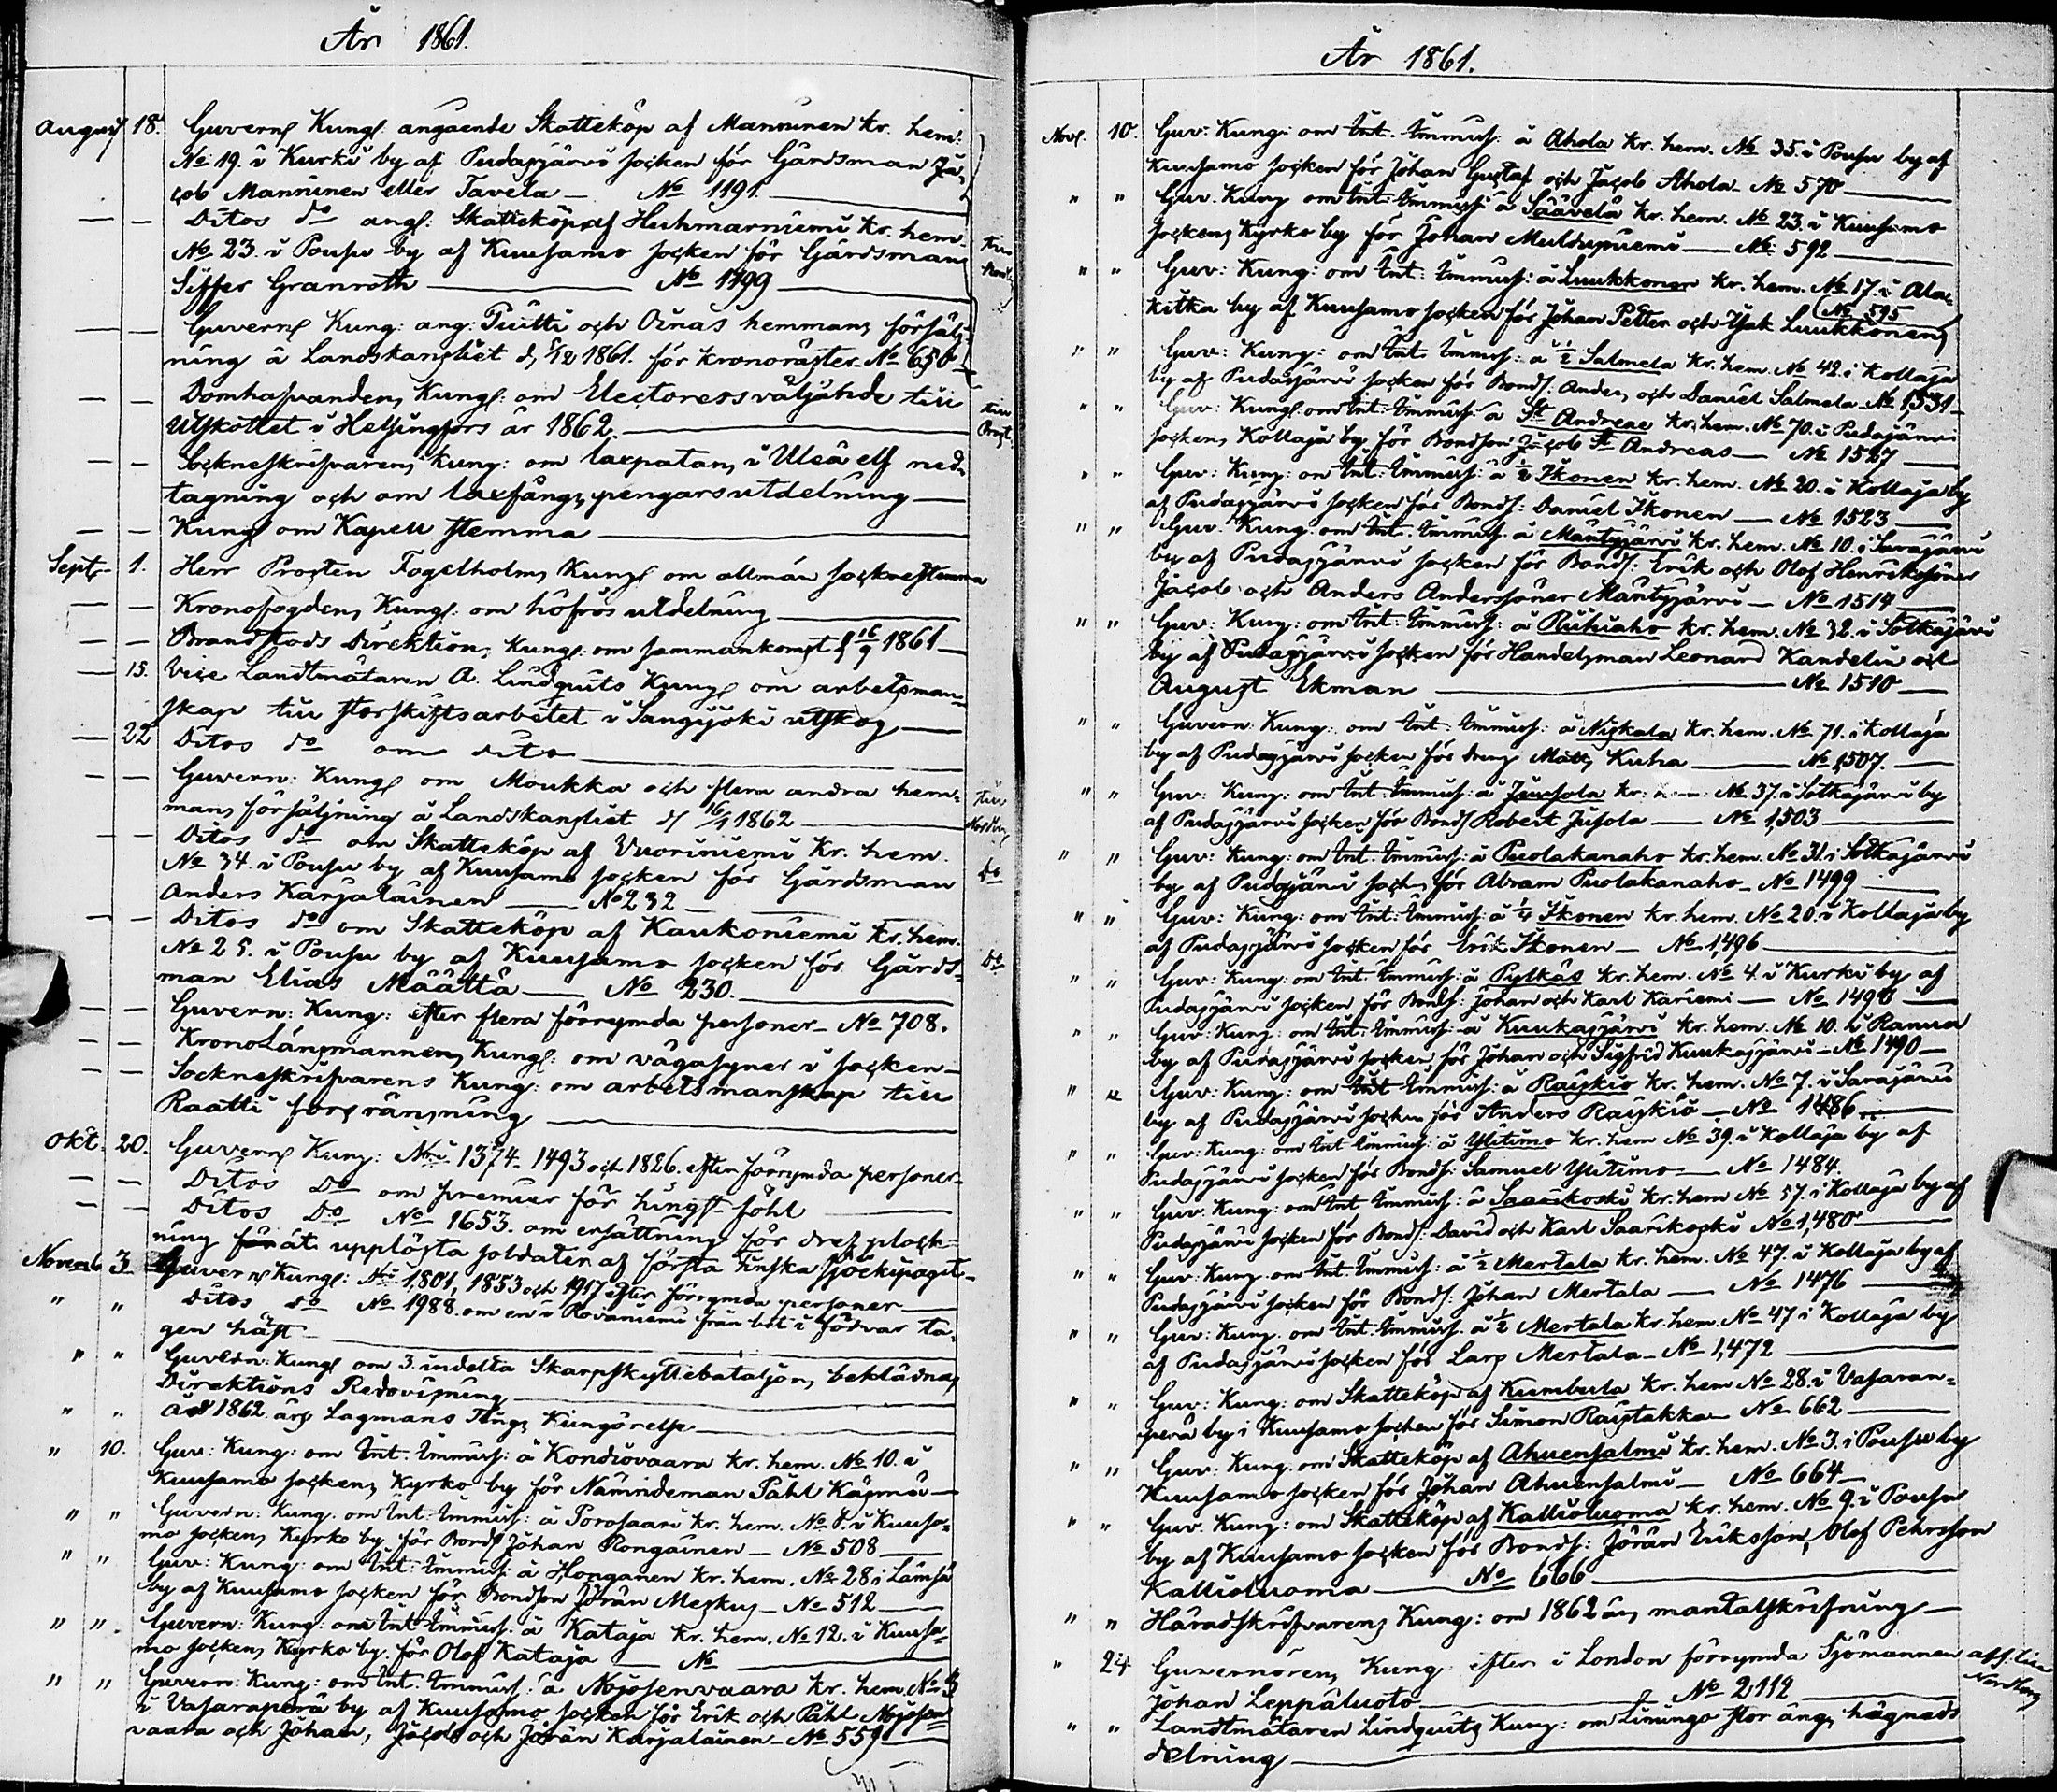 År 1861.
August 18. Guvern Kung angaende Skatteköp af Manninen kr. hem.
No 19. i Kurki by af Pudasjärvi socken för Gårdsman Ja-
cob Manninen eller Tavela — No 1191.
— — Ditos do ang: Skatteköp af Huhmarniemi kr. hem
No 23. i Pousu by af Kuusamo socken för Gårdsman
Siffer Granroth — No 1199
— — Guvern Kung: ang: Piitti och Oinas hemmans försälj-
ning å Landskansliet d 5/12 1861. för kronoräster No 650
— — Domhafvandens Kung: om Electorers väljande till
Utskottet i Helsingfors år 1862.
— — Sockneskrifvarens Kung: om laxpatans i Uleå elf ned-
tagning och om laxfångs pengars utdelning
— — Kung om Kapell stemma
Sept. 1. Herr Prosten Fogelholms Kung om allmän sockenstemma
— — Kronofogdens Kung. om höfrös utdelning
— — Brandstods Direktions Kung: om sammankomst d 16/9 1861
— 15. Vice Landtmätaren A. Lindquits Kung om arbetsman-
skap till storskiftsarbetet i Sangijoki utskog
— 22 Ditos do om dito
— — Guvern: Kung om Moukka och flera andra hem-
mans försäljning å Landskansliet d 16/1 1862
— — Ditos do om Skatteköp af Vuoriniemi Kr. hem.
No 34. i Pousu by af Kuusamo socken för Gårdsman Do
Anders Karjalainen — No 232
— — Ditos do om Skatteköp af Kaukoniemi kr. hem.
No 25. i Pousu by af Kuusamo socken för Gårds- Do
man Elias Määttä — No 230.
— — Guvern: Kung: efter flera förrymda personer — No 708.
— — KronoLänsmannens Kung: om vägasyner i socken
— — Sockneskrifvarens Kung: om arbetsmanskap till
Raatti forsränsning
Okt. 20. Guvern Kung: No 1374 1493 och 1826. efter förrymda personer
— — Ditos Do om premier för hingst föhl
— — Ditos Do No 1653. om ersättning för dref plock-
ning för åt upplösta soldaten af första Finska Sjöekipaget
Novemb 3 Guvern Kung: No 1,801, 1853 och 1917 efter förrymda personer
" " Ditos do No 1988. om en i Rovaniemi i förvar ta-
gen häst
" " Guvern: Kung om 3. indelta Skarpskyttebataljons beklädnads
Direktions Redovisning
" " 1862 års Lagmans Tings Kungörelse
" 10. Guv: Kung: om Int. Immis: å Kondiovaara kr. hem. No 10. i
Kuusamo sockens Kyrko by för Nämndeman Påhl Käsmä
" " Guvern: Kung. om Int: Immis: å Porosaari kr. hem. No 8. i Kuusa-
mo sockens Kyrko by för Bond Johan Rongainen — No 508
" " Guv: Kung: om Int: Immis: å Honganen kr. hem. No 28 i Lämsä
by af Kuusamo socken för Bondson Jöran Meskus — No 512
" " Guvern: Kung: om Int: Immis: å Kataja kr. hem. No 12. i Kuusa-
mo sockens Kyrko by. för Olof Kataja — No
" " Guvern: Kung: om Int: Immis: å Nojosenvaara kr. hem. No
i Vasaraperä by af Kuusamo socken för Erik och Påhl Nojosen-
vaara och Johan, Jacob och Jöran Karjalainen — No 559
År 1861.
Nov. 10. Guv: Kung: om Int. Immis: å Ahola kr. hem. No 35. i Pousu by af
Kuusamo socken för Johan Gustaf och Jacob Ahola — No 570
" " Guv. Kung om Int: Immis: å Säävelä kr. hem. No 23. i Kuusamo
sockens Kyrko by för Johan Multasniemi — No: 592
" " Guv: Kung: om Int: Immis: å Luukkonen kr. hem. No 17. i Ala-
kitka by af Kuusamo socken för Johan Petter och Isak Luukkonen No 595
" " Guv: Kung: om Int. Immis: å 1/2 Salmela kr. hem. No 42. i Kollaja
by af Pudasjärvi socken för Bond: Anders och Daniel Salmela — No 1,531
" " Guv: Kung om Int: Immis: å St Andreae kr. hem. No 70. i Pudasjärvi
sockens Kollaja by för Bondson Jacob St Andreas — No 1527
" " Guv: Kung: om Int: Immis: å 1/2 Ikonen kr. hem. No 20. i Kollaja by
af Pudasjärvi socken för Bond: Daniel Ikonen — No 1523
" " Guv: Kung: om Int. Immis. å Mäntyjärvi kr. hem. No 10. i Sarajärvi
by af Pudasjärvi socken för Bond: Erik och Olof Henrikssöner
Jacob och Anders Anderssöner Mäntyjärvi — No 1514
" " Guv: Kung: om Int: Immis: å Riihiaho kr. hem. No 32. i Sotkajärvi
by af Pudasjärvi socken för Handelsman Leonard Kandelin och
August Ekman — No 1510
" " Guvern: Kung: om Int: Immis: å Niskala kr. hem. No 71. i Kollaja
by af Pudasjärvi socken för dreng Matts Kuha — No 1,507.
" " Guv: Kung: om Int: Immis: å Juusola kr: hem: No 37. i Sotkajärvi by
af Pudasjärvi socken för Bond Robert Jusola — No 1,503
" " Guv: Kung: om Int: Immis: å Puolakanaho kr. hem. No 31. i Sotkajärvi
by af Pudasjärvi sock: för Abram Puolakanaho — No 1499
" " Guv: Kung: om Int: Immis: å 1/4 Ikonen kr. hem. No 20. i Kollaja by
af Pudasjärvi socken för Erik Ikonen — No 1,496
" " Guv: Kung: om Int: Immis: å Pytkäs kr. hem. No 4. i Kurki by af
Pudasjärvi socken för Bond: Johan och Karl Kariemi — No 1493
" " Guv: Kung: om Int: Immis: å Kuukasjärvi kr. hem. No 10. i Ranua
by af Pudasjärvi socken för Johan och Sigfrid Kuukasjärvi — No 1490
" " Guv: Kung: om Int Immis: å Räiskiö kr. hem. No 7. i Sarajärvi
by af Pudasjärvi socken för Anders Räiskiö — No 1486
" " Guv: Kung: om Int Immis: å Ylitimo kr. hem No 39. i Kollaja by af
Pudasjärvi socken för Bond: Samuel Ylitimo — No 1484.
" " Guv: Kung: om Int Immis: å Saarikoski kr. hem No 57. i Kollaja by af
Pudasjärvi socken för Bond: David och Karl Saarikoski No 1,480
" " Guv: Kung om Int: Immis: å 1/2 Mertala kr. hem. No 47. i Kollaja by af
Pudasjärvi socken för Bond: Johan Mertala — No 1476
" " Guv: Kung. om Int: Immis: å 1/2 Mertala kr. hem. No 47 i Kollaja by
af Pudasjärvi socken för Lars Mertala — No 1,472
" " Guv: Kung: om Skatteköp af Kumbula kr. hem No 28. i Vasaran-
perä by i Kuusamo socken för Simon Räistakka — No 662
" " Guv: Kung: om Skatteköp af Ahvensalmi kr. hem. No 3. i Pousu by
Kuusamo socken för Johan Ahvensalmi — No 664
" " Guv. Kung: om Skatteköp af Kallioluoma kr. hem. No 9. i Pousu
by af Kuusamo socken för Bond: Jöran Eriksson, Olof Pehrsson
Kallioluoma — No 666
" " Häradskrifvarens Kung: om 1862 års mantalskrifning
" 24 Guvernörens Kung: efter i London förrymda Sjömannen
Johan Leppäluoto — No 2112
" " Landtmätaren Lindquits Kung: om Limingo stor ängs hägnads
delning